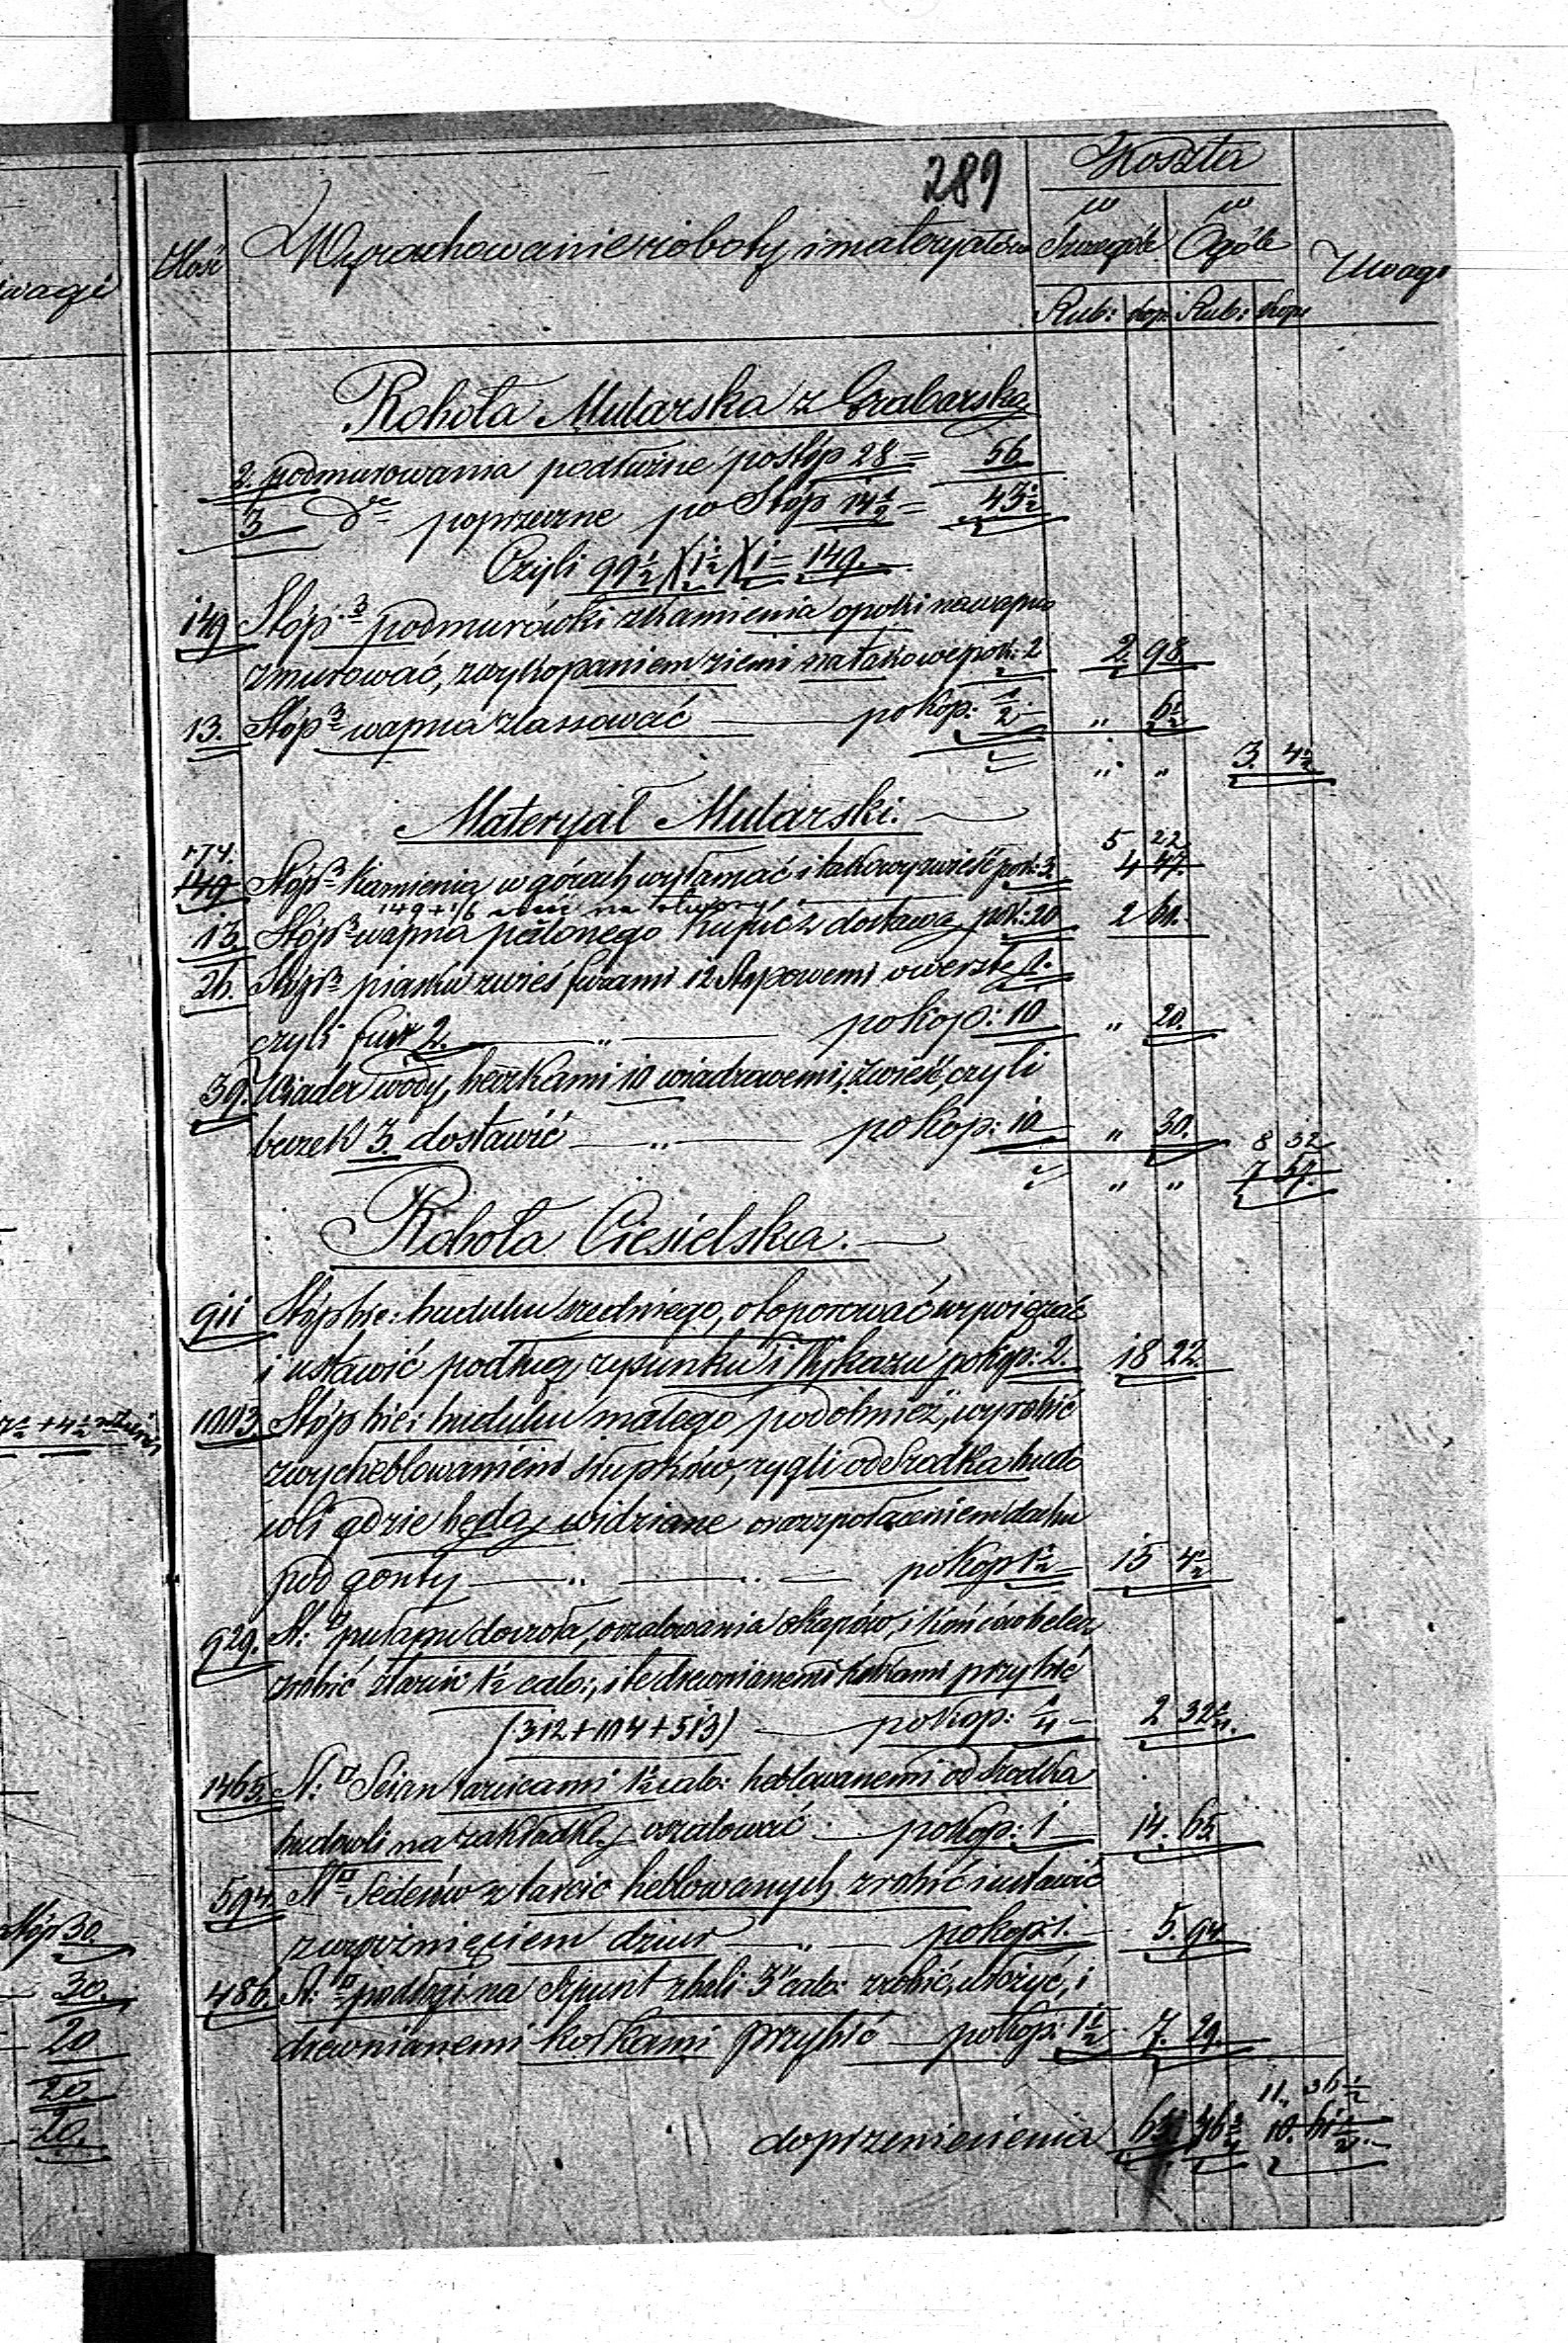 289
Koszta
w w
Ilość Wyrachowanie roboty i materyałów Szczególe Ogóle Uwagi
Rub: kop: Rub: kop:
Robota Mularska z Grabarską
2. podmurowania podłużne po stóp 28 = 56
3 dto poprzeczne po Stóp 14 1/2 = 43 1/2
Czyli 99 1/2 X 1 1/2 X 1 = 149.
149 Stóp 3 podmurówki z kamienia opoki na wapno
zmurować, z wykopaniem ziemi na takowe po k: 2 2. 98.
13. Stóp 3 wapna zlassować po kop: 1/2 " 6 1/2
" " 3. 4 1/2
Materyał Mularski.
174. 5 22
149 Stóp 3 kamienia w górach wyłamać i takowy zwieść po k: 3. 4 47.
149 + 1/6 część na
13 Stóp 3 wapna palonego kupić z dostawą po k: 20 2 60.
26. Stóp 3 piasku zwieś furami 12 Stopowemi o werstę 1.
czyli fur 2. " po kop: 10 " 20.
39. Wiader wody, beczkami 10 wiadrowemi, zwieść, czyli
beczek 3. dostawić " po kop: 10 " 30. 8 32
" " 7 57.
Robota Ciesielska.
911 Stóp bie: budulcu średniego, otoporować wywiązać
i ustawić podług rysunku i Wykazu po kop: 2. 18 22.
1003. Stóp bie: budulcu małego podobnież, wyrobić
z wycheblowaniem słupków, rygli od środka budo
wli gdzie będą widziane oraz z połaceniem dachu
pod gonty " po kop 1 1/2 15 4 1/2
929. St: □ pułapu do wrota, oszalowania okapów, i końców belek
zrobić z tarcic 1 1/2 calo:, i te drewnianemi kołkami przybić
(312 + 104 + 513) po kop: 1/4 2 32 1/4.
1465. St: □ Ścian tarcicami 1 1/2 calo: heblowanemi od środka
budowli na zakładkę oszalować po kop: 1 14. 65
594. St □ Sedesów z tarcic heblowanych zrobić i ustawić
z wyrżnięciem dziur " po kop: 1. 5. 94
486. St: □ podłogi na Szpunt z bali 3" calo: zrobić, ułożyć, i
drewnianemi kołkami przybić po kop: 1 1/2 7. 29.
11. 36 1/2
do przeniesienia 63. 46 3/4 10. 61 1/2
wagi
Stóp 30
30.
20
20.
20.